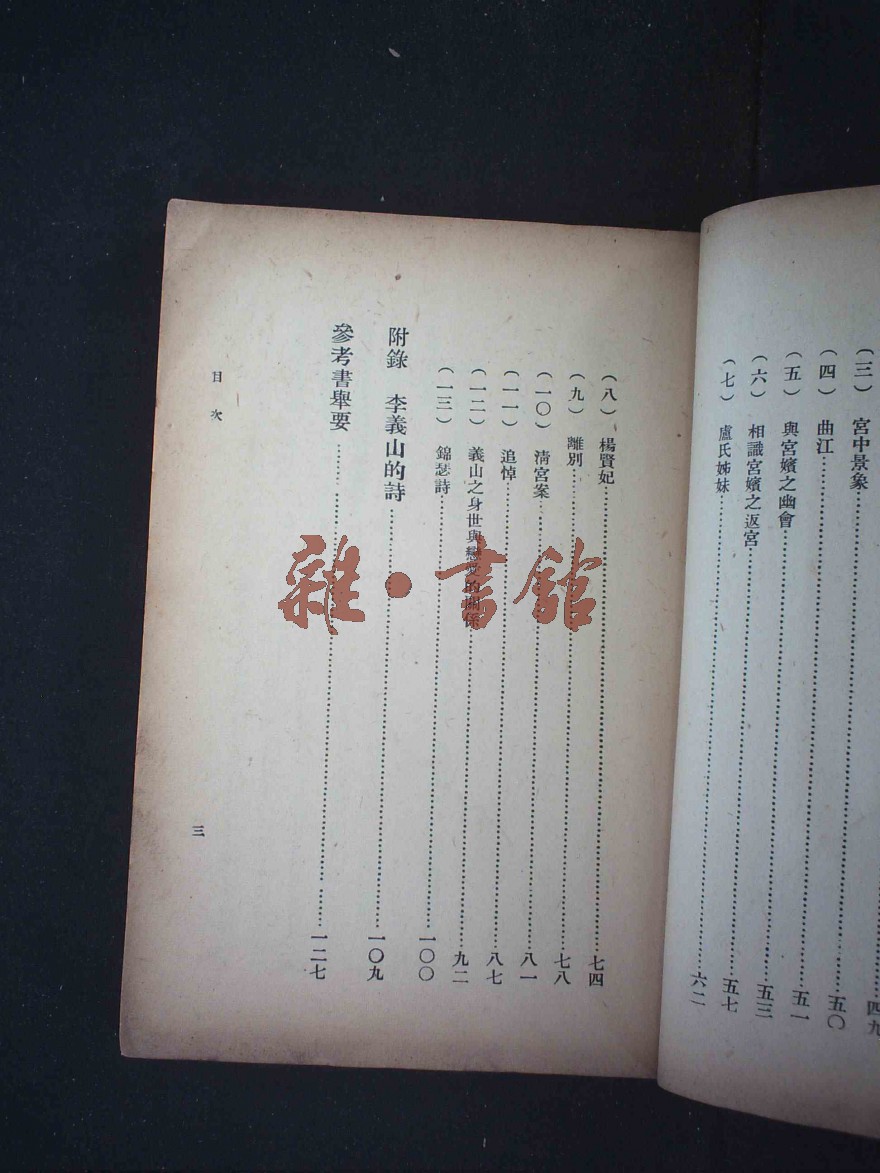 四九
（三） 宮中景象……五〇
（四） 曲江……五一
（五） 與宮嬪之幽會……五三
（六） 相識宮嬪之返宮……五七
（七） 盧氏姊妹……六二
（八） 楊賢妃……七四
（九） 離別……七八
（一〇） 清宮案……八一
（一一） 追悼……八七
（一二） 義山之身世與戀愛的關係……九二
（一三） 錦瑟詩……一〇〇
附錄 李義山的詩……一〇九
參考書舉要……一二七
目次
三
雜·書館